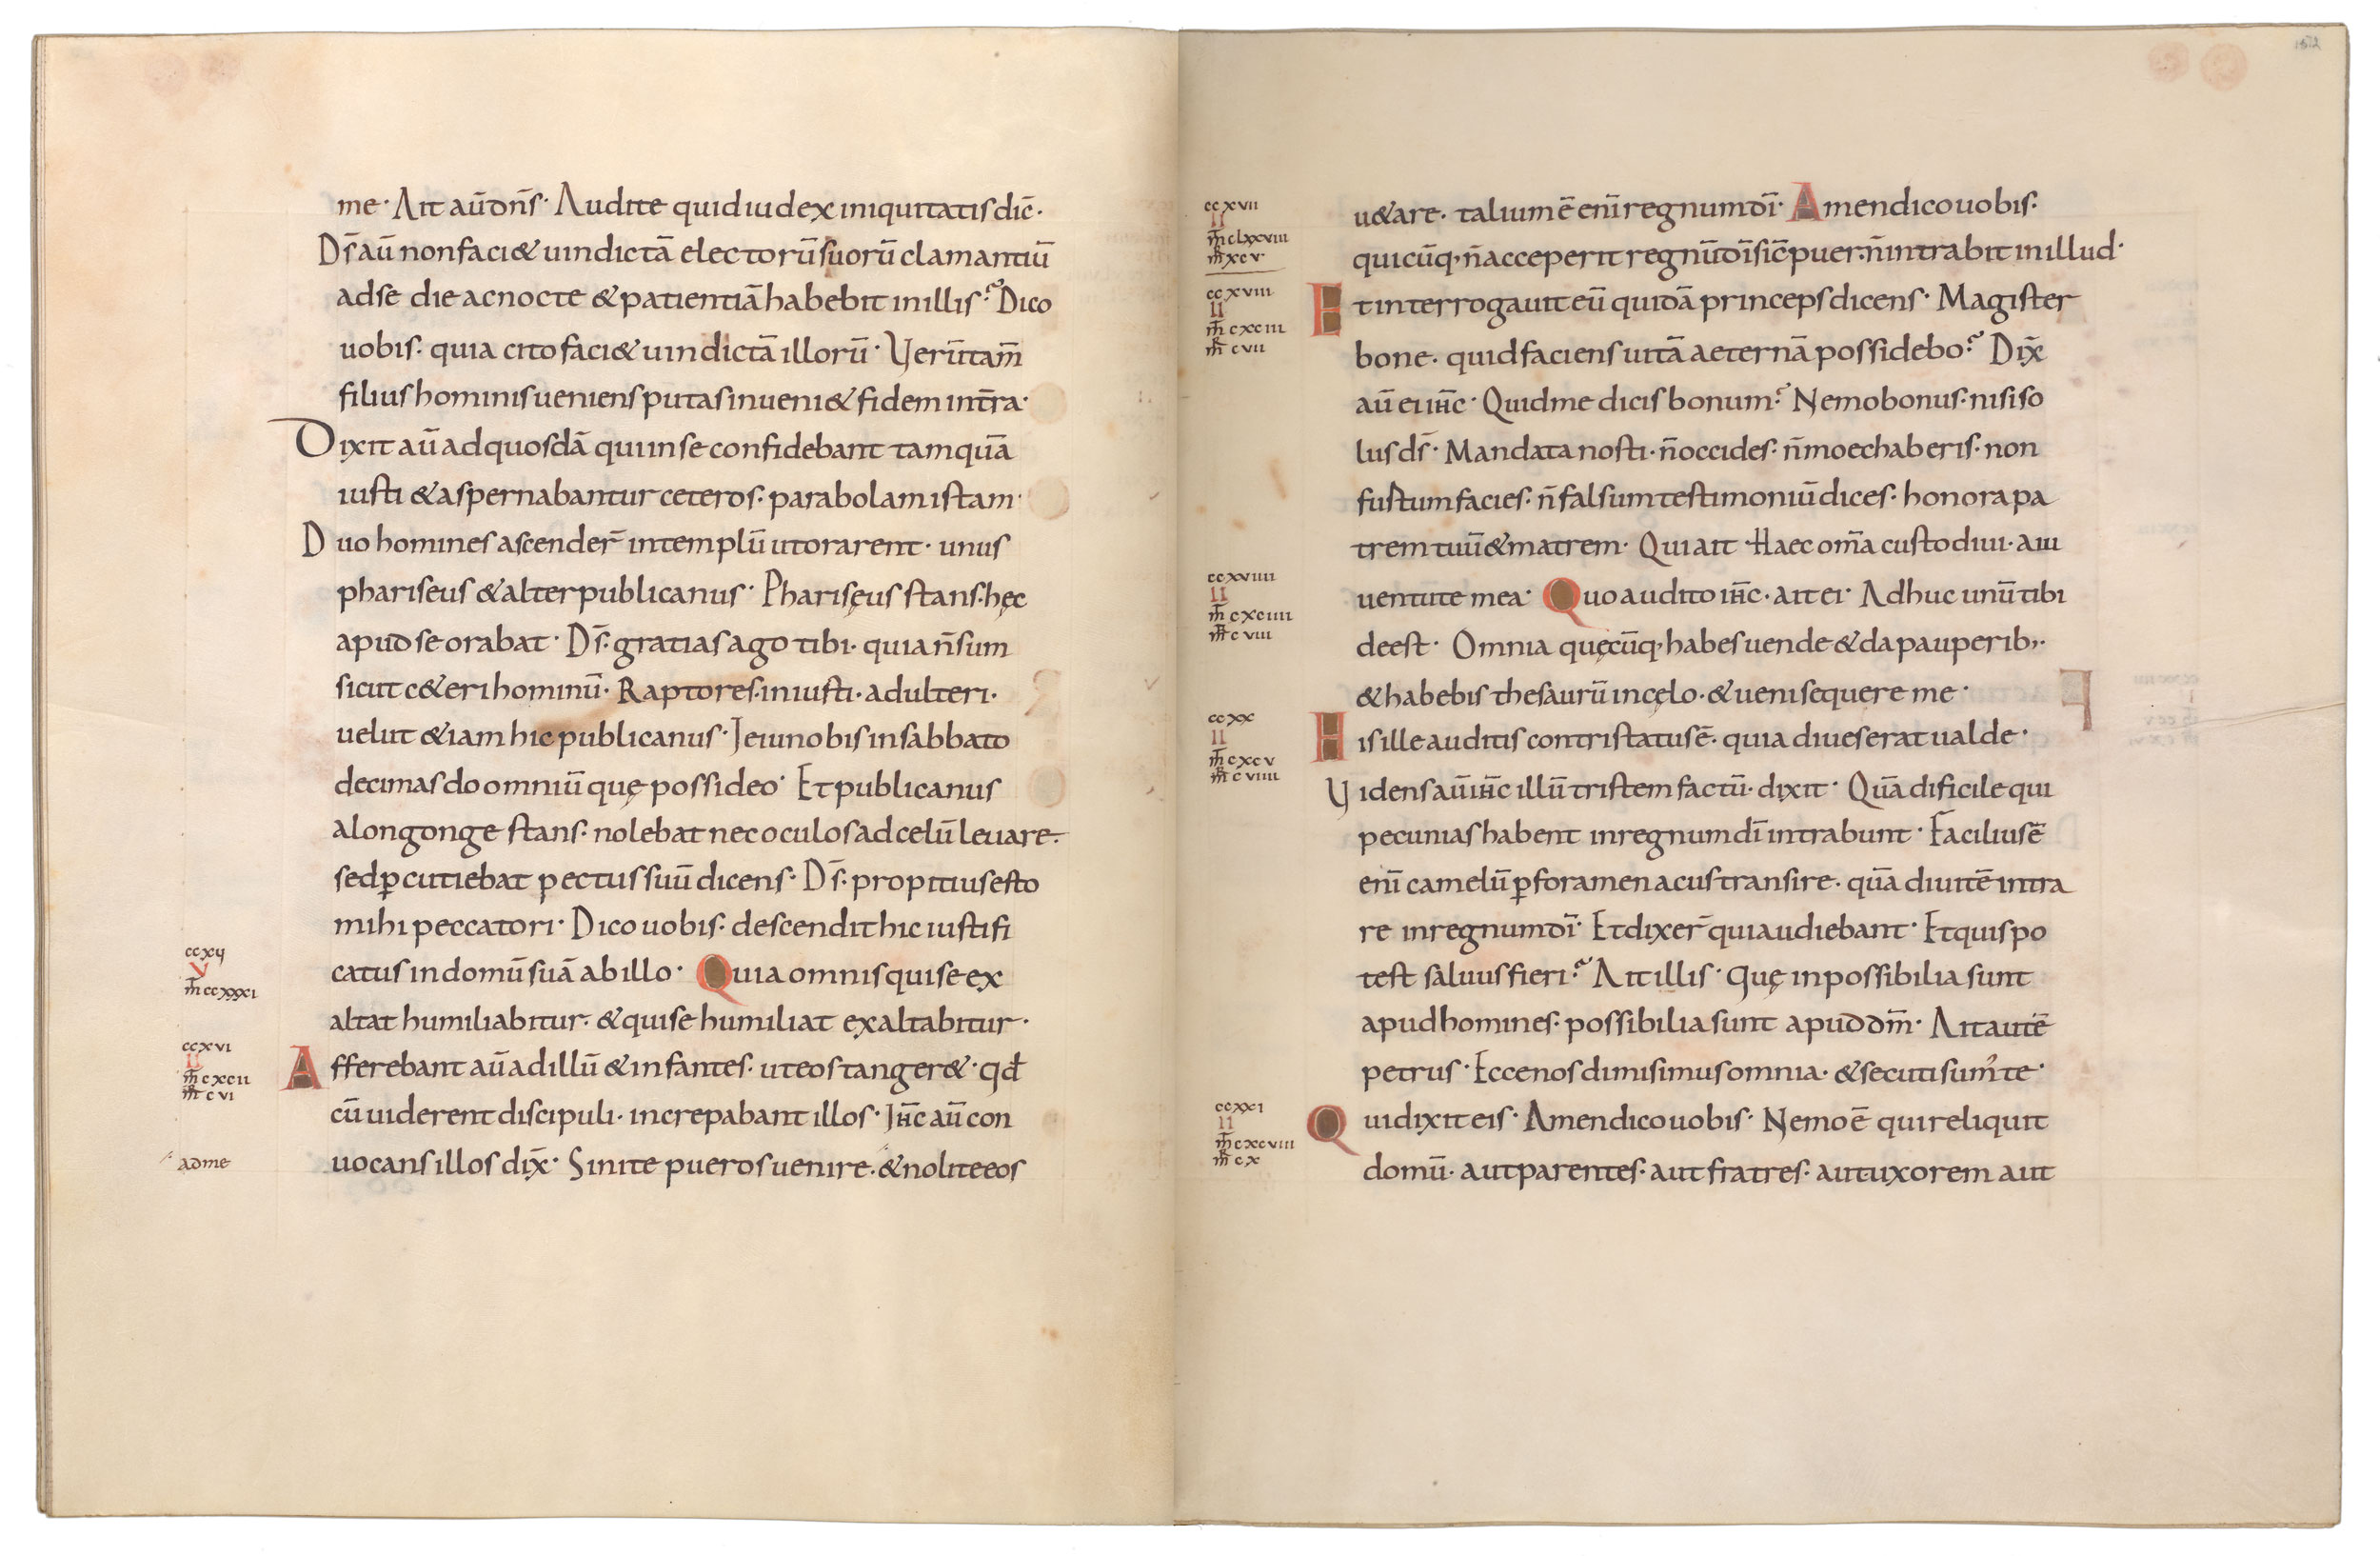 me· Ait aū dn̄s· Audite quid iudex iniquitatis dic̄·
Ds̄ aū non faci& uindictā electorū suorū clamantiū
ad se die ac nocte & patientiā habebit in illis? Dico
uobis· quia cito faci& uindictā illorū· Uerūtam̄
filius hominis ueniens putas inueni& fidem in tr̄ra·
Dixit aū ad quosdā qui in se confidebant tamquā
iusti & aspernabantur ceteros· parabolam istam·
Duo homines ascender̄ in templū ut orarent· unus
phariseus & alter publicanus· Pharisęus stans· hęc
apud se orabat· Ds̄· gratias ago tibi· quia n̄ sum
sicut c&eri hominū· Raptores· iniusti· adulteri·
uelut &iam hic publicanus· Ieiuno bis in sabbato
decimas do omniū quę possideo· Et publicanus
a longonge stans· nolebat nec oculos ad celū leuare·
sed p̱cutiebat pectus suū dicens· Ds̄· propitius esto
mihi peccatori· Dico uobis· descendit hic iustifi
ccxv
catus in domū suā ab illo· Quia omnis qui se ex
v
m̄ ccxxxi
altat humiliabitur· & qui se humiliat exaltabitur·
ccxvi
Afferebant aū ad illū & infantes· ut eos tanger&· qđ
II
m̄ cxcii
mr̄ cvi
cū uiderent discipuli· increpabant illos· Ih̄c aū con
uocans illos dix̄· Sinite pueros uenire· & nolite eos
ad me
ccxvii
u&are· talium ē enī regnum dī· Amen dico uobis·
II
m̄ clxxviii
quicūq; n̄ acceperit regnū dī sic̄ puer· n̄ intrabit in illud·
mr̄ xcv
ccxviii
Et interrogauit eū quidā princeps dicens· Magister
II
m̄ cxciii
bone· quid faciens uitā aeternā possidebo? Dix̄
mr̄ cvii
aū ei ih̄c· Quid me dicis bonum? Nemo bonus· nisi so
lus ds̄· Mandata nosti· n̄ occides· n̄ moechaberis· non
fustum facies· n̄ falsum testimoniū dices· honora pa
trem tuū & matrem· Qui ait· Haec om̄a custodiui· a iu
ccxviiii
uentute mea· Quo audito ih̄c· ait ei· Adhuc unū tibi
II
m̄ cxciiii
mr̄ cviii
deest· Omnia quęcūq; habes uende & da pauperib;·
& habebis thesaurū in cęlo· & ueni sequere me·
ccxx
His ille auditis contristatus ē· quia diues erat ualde·
II
m̄ cxcv
mr̄ cviiii
Uidens aū ih̄c illū tristem factū· dixit· Quā dificile qui
pecunias habent in regnum dī intrabunt· Facilius ē
enī camelū p̱ foramen acus transire· quā diuitē intra
re in regnum dī· Et dixer̄ qui audiebant· Et quis po
test saluus fieri? Ait illis· Quę inpossibilia sunt
apud homines· possibilia sunt apud dm̄· Ait autē
petrus· Ecce nos dimisimus omnia· & secuti sum' te·
ccxxi
Qui dixit eis· Amen dico uobis· Nemo ē qui reliquit
II
m̄ cxcviii
mr̄ cx
domū· aut parentes· aut fratres· aut uxorem aut